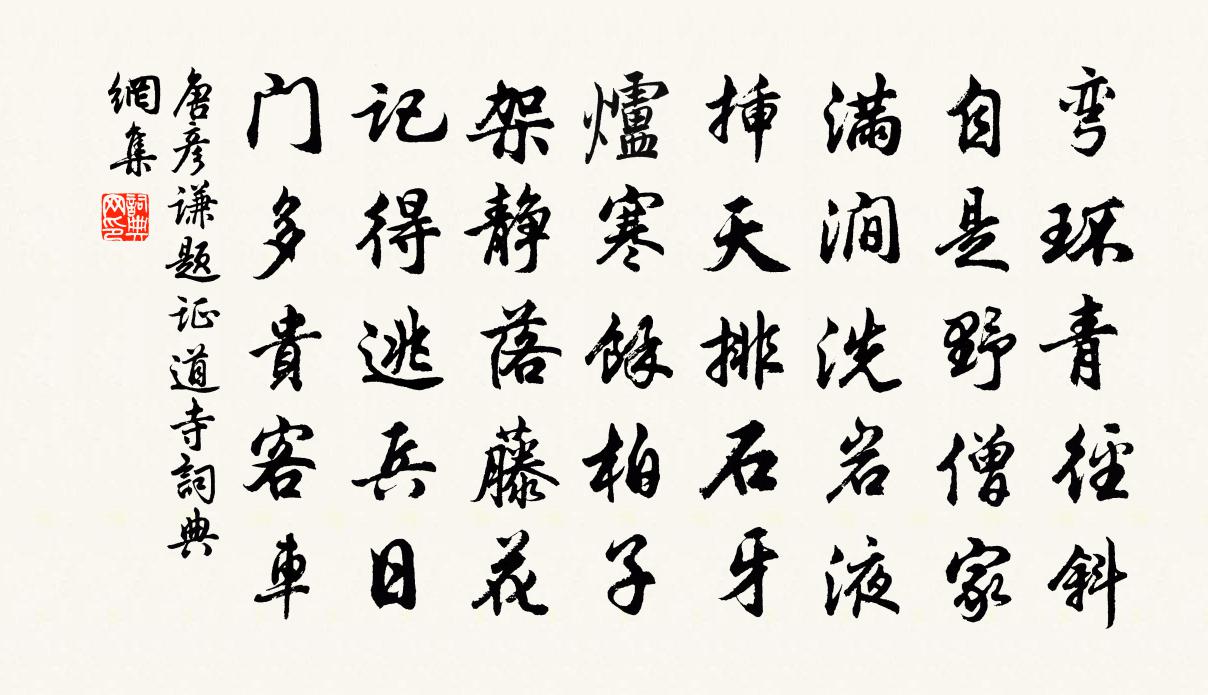 弯环青径斜
自是野僧家
满涧洗岩液
插天排石牙
爐寒餘柏子
架静落藤花
记得逃兵日
门多貴客車
唐彦谦题证道寺詞典
網集
詞典网印